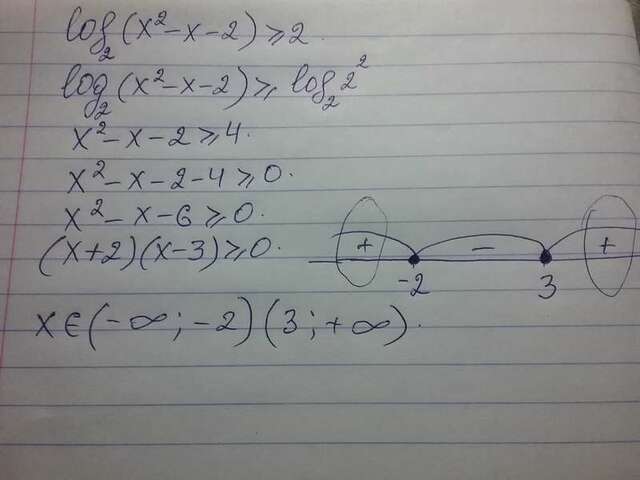 log₂(x²-x-2)⩾2.
log₂(x²-x-2)⩾log₂2²
x²-x-2⩾4.
x²-x-2-4⩾0.
x²-x-6⩾0.
(x+2)(x-3)⩾0.
+ - +
-2 3
x∈(-∞;-2)(3;+∞).